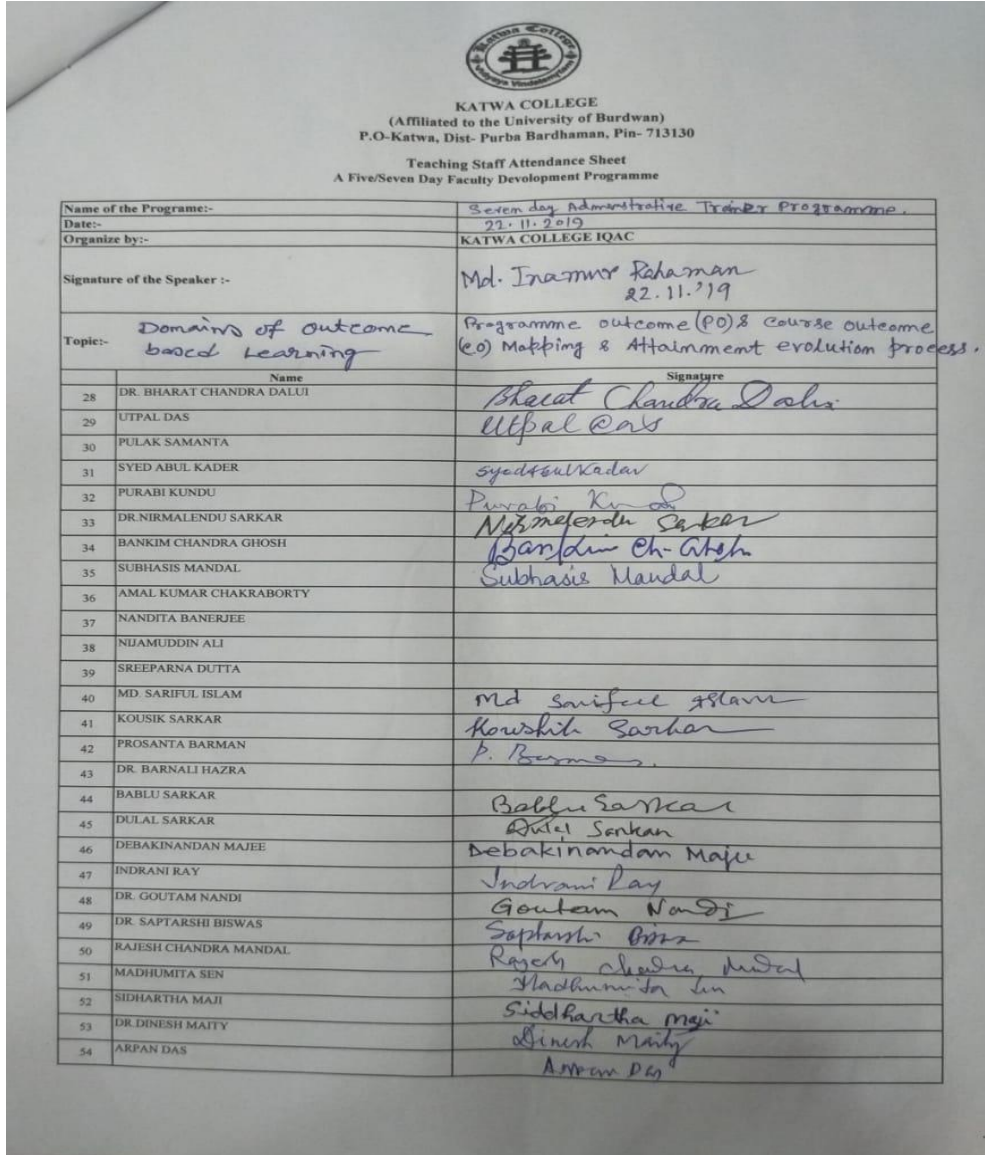 Katwa College
Vidyaya Vindatemritam
KATWA COLLEGE
(Affiliated to the University of Burdwan)
P.O-Katwa, Dist- Purba Bardhaman, Pin- 713130
Teaching Staff Attendance Sheet
A Five/Seven Day Faculty Devolopment Programme
Name of the Programe:- Seven day Admenstrative Trainer Programme.
Date:- 22.11.2019
Organize by:- KATWA COLLEGE IQAC
Signature of the Speaker :- Md. Inamur Rahaman
22.11.'19
Topic:- Domains of outcome based Learning
Programme outcome (PO) & course outcome
(CO) Mapping & Attainment evolution process.
Name Signature
28 DR. BHARAT CHANDRA DALUI Bharat Chandra Dalui
29 UTPAL DAS Utpal Das
30 PULAK SAMANTA
31 SYED ABUL KADER Syed Abul Kadar
32 PURABI KUNDU Purabi
33 DR.NIRMALENDU SARKAR Nirmalendu Sarkar
34 BANKIM CHANDRA GHOSH Bankim Ch- Ghosh
35 SUBHASIS MANDAL Subhasis Mandal
36 AMAL KUMAR CHAKRABORTY
37 NANDITA BANERJEE
38 NIJAMUDDIN ALI
39 SREEPARNA DUTTA
40 MD. SARIFUL ISLAM Md Sariful Islam
41 KOUSIK SARKAR Koushik Sarkar
42 PROSANTA BARMAN P. Barman.
43 DR. BARNALI HAZRA
44 BABLU SARKAR Bablu Sarkar
45 DULAL SARKAR Dulal Sarkar
46 DEBAKINANDAN MAJEE Debakinandan Majee
47 INDRANI RAY Indrani Ray
48 DR. GOUTAM NANDI Goutam Nandi
49 DR. SAPTARSHI BISWAS Saptarshi
50 RAJESH CHANDRA MANDAL Rajesh Chandra Mandal
51 MADHUMITA SEN Madhumita Sen
52 SIDHARTHA MAJI Siddhartha Maji
53 DR.DINESH MAITY Dinesh Maity
54 ARPAN DAS Arpan Das